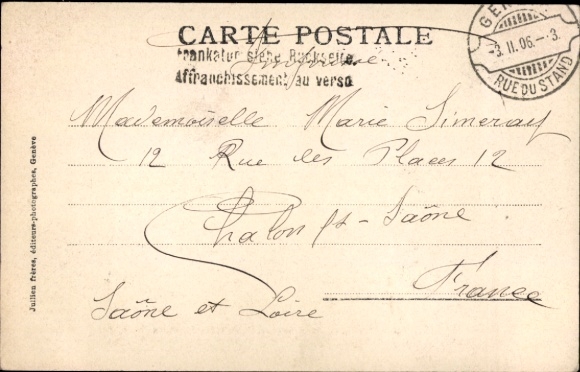 CARTE POSTALE
Frankatur siehe Rückseite.
Affranchissement au verso
Imprimé
GEN
3. II. 06. — 3.
RUE DU STAND
Mademoiselle Marie Simeray
12 Rue des Places 12
Chalon s/- Saône
France
Saône et Loire
Jullien frères, éditeurs-photographes, Genève